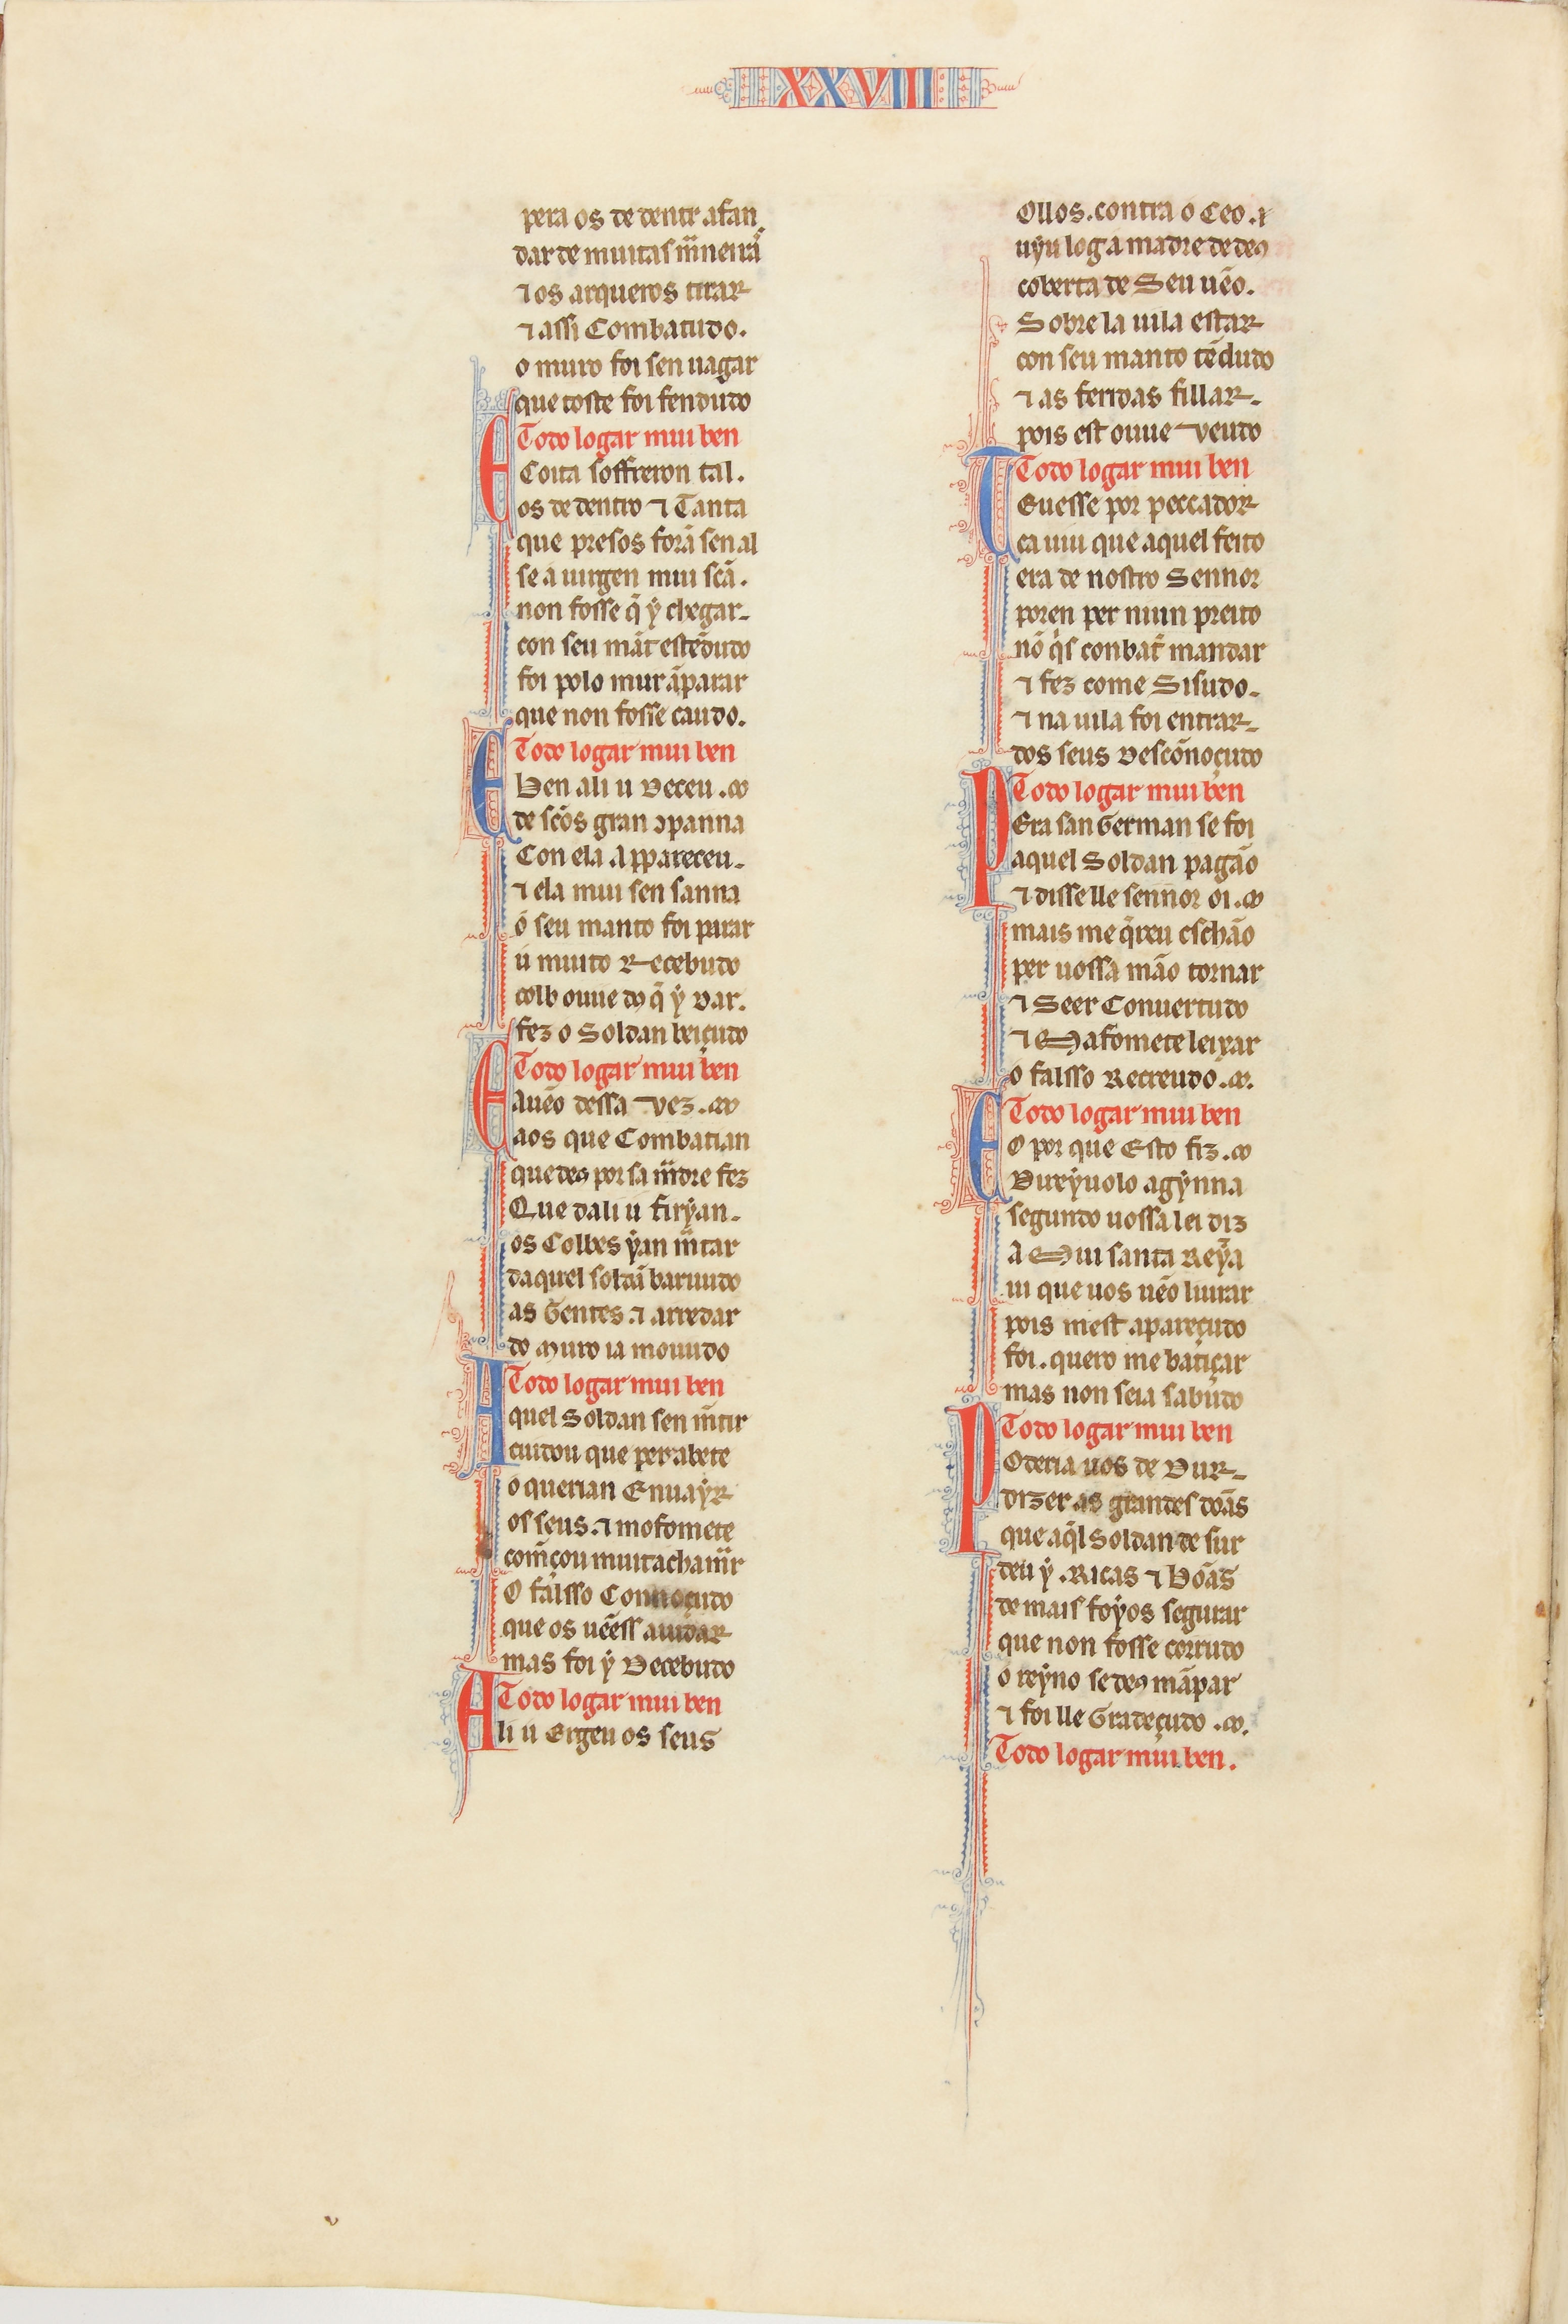 XXVIII
pera os de dentr afan
dar de muitas m̃neirã
⁊ os arqueiros tirar
⁊ assi Combatudo.
o muro foi sen uagar
que toste foi fendudo
Todo logar mui ben
E Coita soffreron tal.
os de dentro ⁊ Tanta
que presos forã sen al
se a uirgen mui scã.
non fosse q̃ ỹ chegar
con seu mãt estẽdudo
foi polo mur ãparar
que non fosse caudo.
Todo logar mui ben
E Ben ali u Deceu.
de scõs gran ꝯpanna
Con ela Appareceu.
⁊ ela mui sen sanna
o seu manto foi parar
u muito Recebudo
colb ouue do q̃ ỹ dar.
fez o Soldan beiçudo
Todo logar mui ben
E auẽo dessa vez.
aos que Combatian
que deꝯ por sa m̃dre fez
Que dali u firỹan
os Colbes ỹan m̃tar
daquel soldã baruudo
as Gentes. ⁊ arredar
do Muro ia mouudo
Todo logar mui ben
A quel Soldan sen m̃tir
cuidou que per abete
o querian Enuaỹr
os seus. ⁊ mofomete
com̃çou muit a cham̃r
O falsso Connoçudo
que os uẽess aiudar
mas foi ỹ Decebudo
Todo logar mui ben
A li u Ergeu os seus
Ollos. contra o Ceo. ⁊
uỹu log a madre de deꝯ
coberta de Seu uẽo.
Sobre la uila estar
con seu manto tẽdudo
⁊ as feridas fillar.
pois est ouue veudo
Todo logar mui ben
T Euesse por peccador
ca uiu que aquel feito
era de nostro Sennor
poren per niun preito
nõ q̇s conbat̃ mandar
⁊ fez come Sisudo.
⁊ na uila foi entrar
dos seus Descõnoçudo
Todo logar mui ben
P Era san German se foi
aquel Soldan pagão
⁊ disse lle sennor oi.
mais me q̃reu cschão
per uossa mão tornar
⁊ Seer Conuertudo
⁊ Mafomete leixar
o falsso Recreudo.
Todo logar mui ben
E O por que Esto fiz.
Direỹ uolo agỹnna
segundo uossa lei diz
A Mui santa Reỹa
ui que uos uẽo liurar
pois m est apareçudo
foi. quero me batiçar
mas non seia sabudo
Todo logar mui ben
P Oderia uos de Dur
dizer as grandes dõas
que aq̃l Soldan de sur
deu ỹ. Ricas ⁊ Bõas
de mais foỹos segurar
que non fosse corrudo
o reỹno se deꝯ m ãpar
⁊ foi lle Gradeçudo.
Todo logar mui ben.